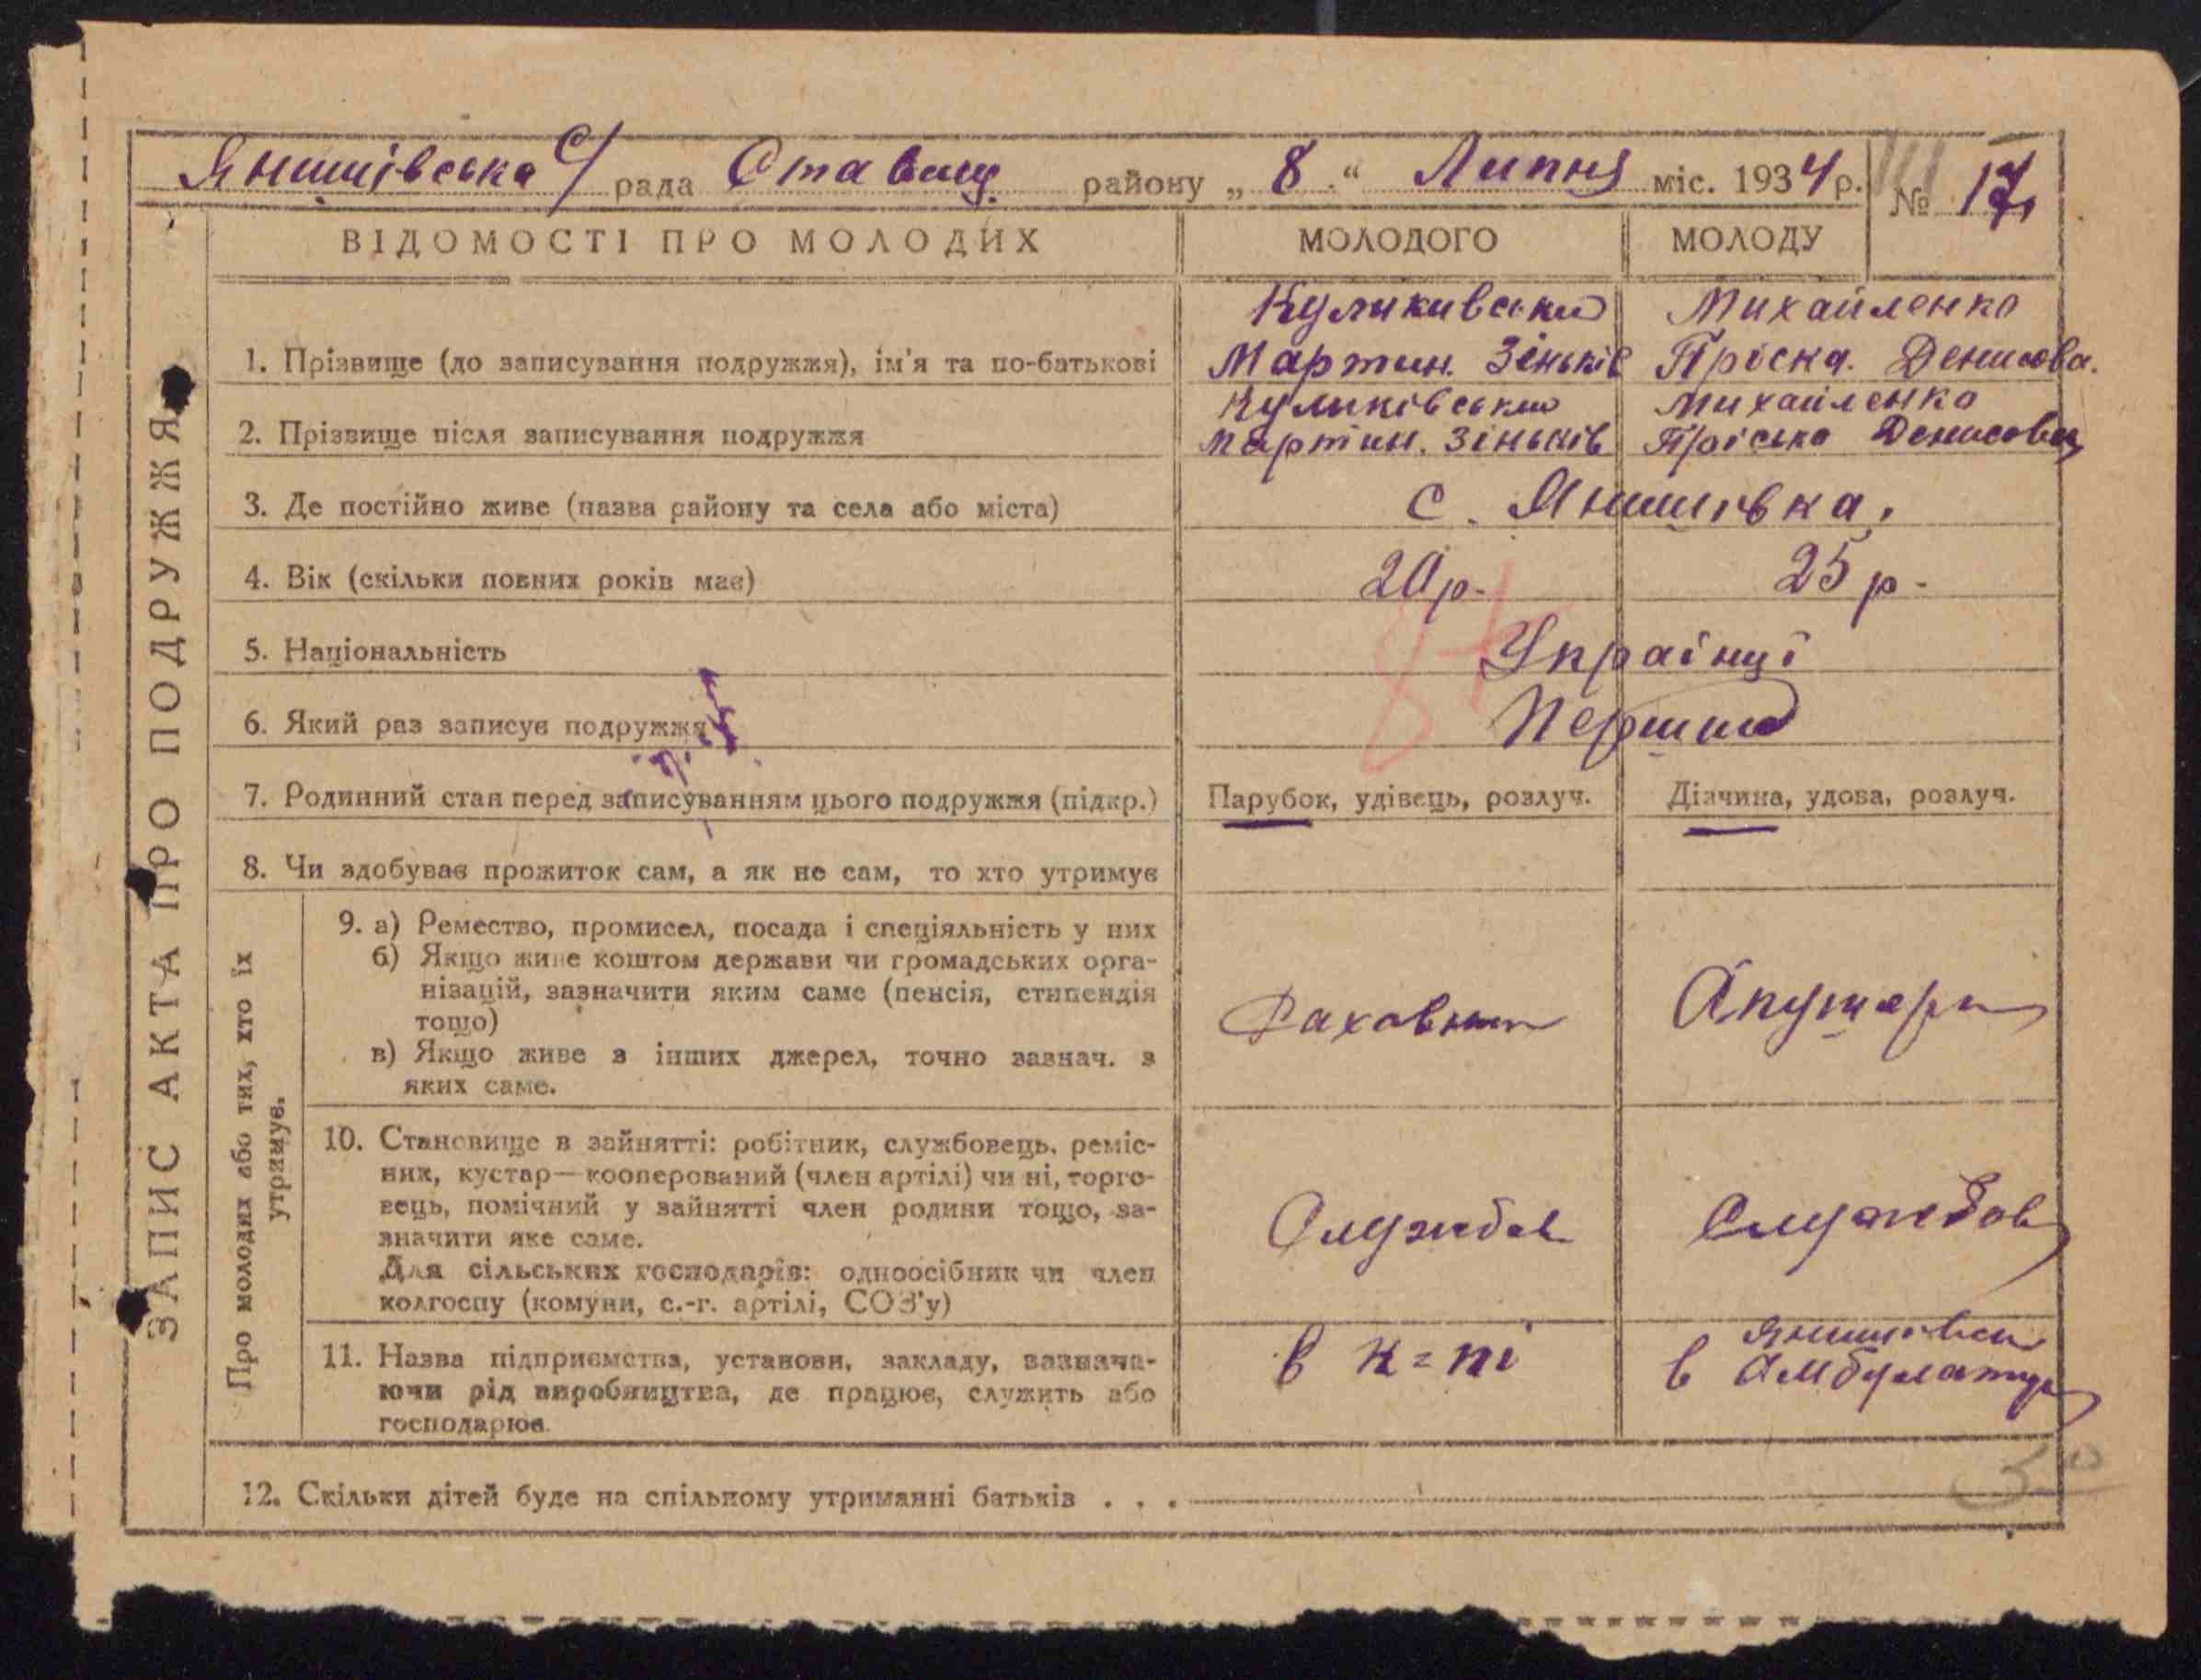 Янишівська с/ рада Ставищ. району „ 8 " Липня міс. 1934 р. № 17
ВІДОМОСТІ ПРО МОЛОДИХ МОЛОДОГО МОЛОДУ
ЗАПИС АКТА ПРО ПОДРУЖЖЯ
Куликивський Михайленко
1. Прізвище (до записування подружжя), ім'я та по-батькові Мартин. Зіньків Пріська. Денисова.
Куликівський Михайленко
2. Прізвище після записування подружжя Мартин. Зіньків Пріська Денисова
3. Де постійно живе (назва району та села або міста) с. Янишівка.
4. Вік (скільки повних років має) 20 р. 25 р.
5. Національність Українці
6. Який раз записує подружжя Перший
7. Родинний стан перед записуванням цього подружжя (підкр.) Парубок, удівець, розлуч. Дівчина, удова, розлуч.
8. Чи здобуває прожиток сам, а як не сам, то хто утримує
Про молодих або тих, хто їх
утримує.
9. а) Ремество, промисел, посада і спеціяльність у них
б) Якщо живе коштом держави чи громадських орга-
нізацій, зазначити яким саме (пенсія, стипендія
тощо) Раховник Акушерка
в) Якщо живе з інших джерел, точно зазнач. з
яких саме.
10. Становище в зайнятті: робітник, службовець, реміс-
ник, кустар—кооперований (член артілі) чи ні, торго-
вець, помічний у зайнятті член родини тощо, за- Службов Службов
значити яке саме.
Для сільських господарів: одноосібник чи член
колгоспу (комуни, с.-г. артілі, СОЗ'у)
11. Назва підприємства, установи, закладу, зазнача- в к=пі Янишівськ
ючи рід виробництва, де працює, служить або в Амбулатор
господарює.
12. Скільки дітей буде на спільному утриманні батьків . . .